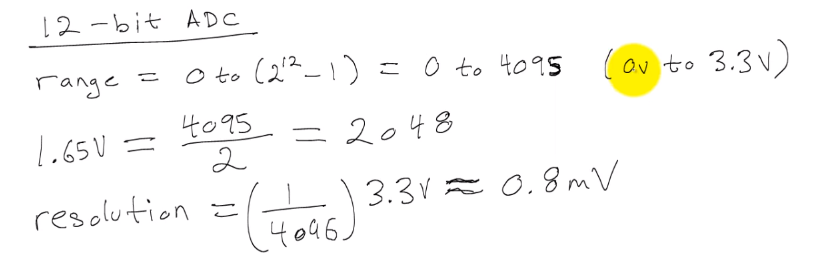 12-bit ADC
range = 0 to (2¹²-1) = 0 to 4095 (0v to 3.3V)
1.65V = 4095/2 = 2048
resolution = (1/4096) 3.3V ≈ 0.8mV